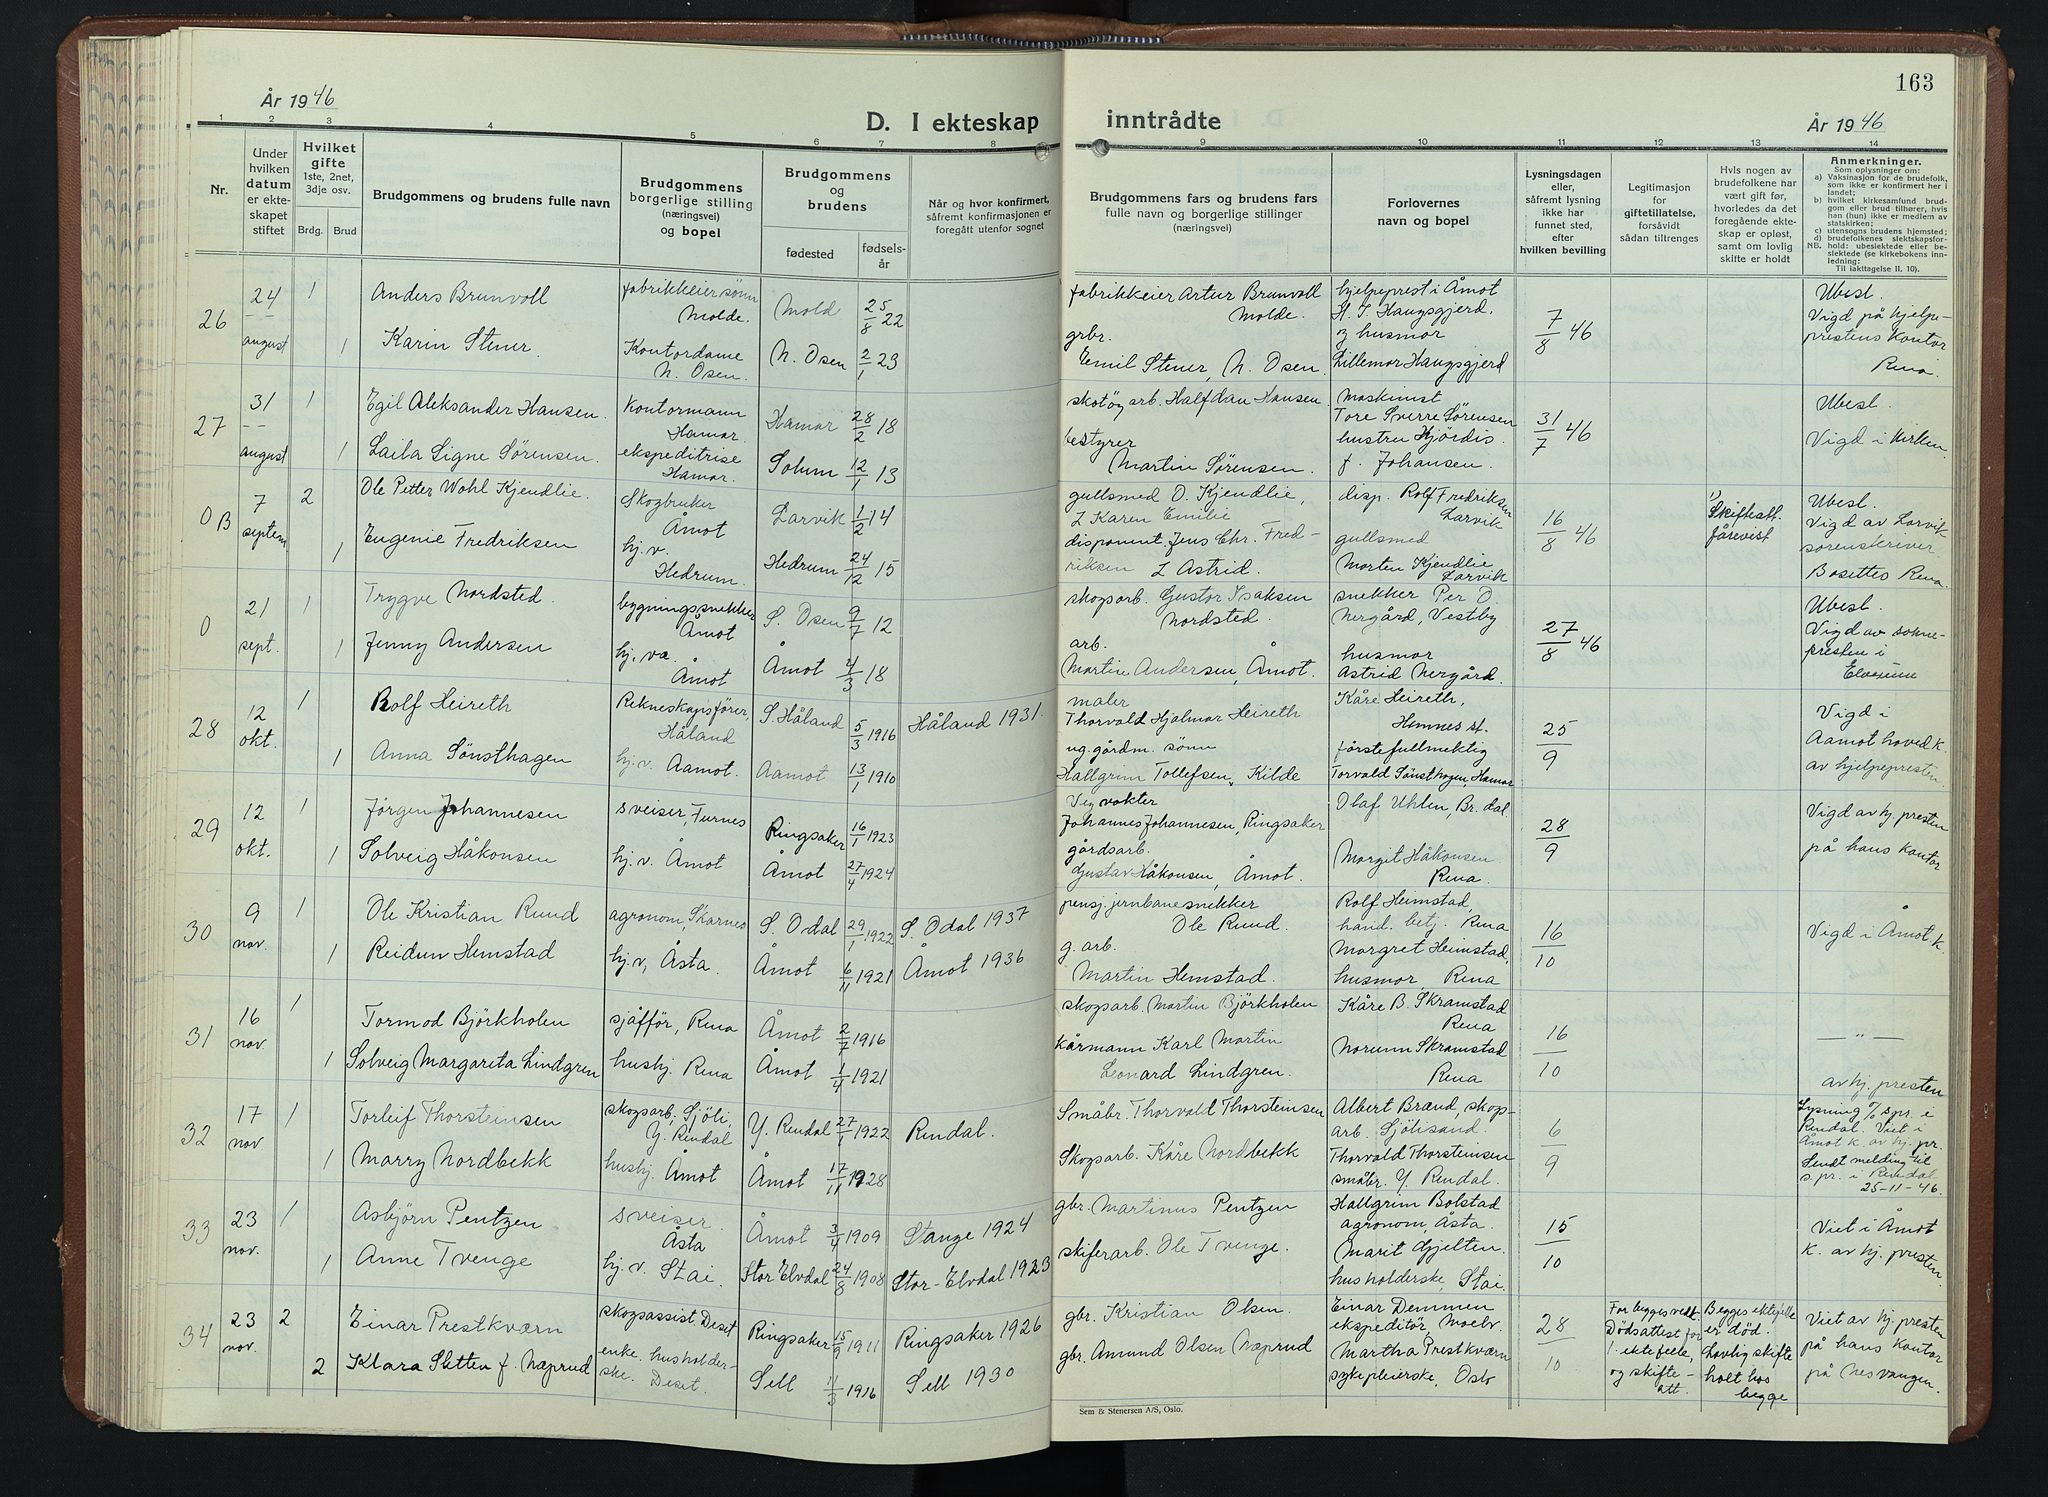 163
År 1946
D. I ekteskap inntrådte
År 1946
1 2 3 4 5 6 7 8 9 10 11 12 13 14
Nr.
Under hvilken datum er ekteskapet stiftet
Hvilket gifte 1ste, 2net, 3dje osv.
Brdg. Brud
Brudgommens og brudens fulle navn
Brudgommens borgerlige stilling (næringsvei) og bopel
Brudgommens og brudens
fødested
fødselsår
Når og hvor konfirmert, såfremt konfirmasjonen er foregått utenfor sognet
Brudgommens fars og brudens fars fulle navn og borgerlige stillinger (næringsvei)
Forlovernes navn og bopel
Lysningsdagen eller, såfremt lysning ikke har funnet sted, efter hvilken bevilling
Legitimasjon for giftetillatelse, forsåvidt sådan tiltrenges
Hvis nogen av brudefolkene har vært gift før, hvorledes da det foregående ekteskap er opløst, samt om lovlig skifte er holdt
Anmerkninger.
Som oplysninger om:
a) Vaksinasjon for de brudefolk, som ikke er konfirmert her i landet;
b) hvilket kirkesamfund brudgom eller brud tilhører, hvis han (hun) ikke er medlem av statskirken;
c) utensogns brudens hjemsted;
d) brudefolkenes slektskapsforhold: ubeslektede eller beslektede (se kirkebokens innledning:
NB. Til iakttagelse II, 10).
26 24 august 1 Anders Brunvoll fabrikkeiersønn Molde. Mold 25/8 22 fabrikkeier Artur Brunvoll Molde. hjelpeprest i Åmot H. S. Haugsgjerd. 7/8 46 Ubesl. Vigd på hjelpeprestens kontor Rena.
1 Karin Stener. Kontordame N. Osen. N. Osen 2/1 23 grbr. Emil Stener, N. Osen. og husmor Lillemor Haugsgjerd
27 31 august 1 Egil Aleksander Hansen. Kontormann Hamar. Hamar 28/2 18 skotøyarb. Halfdan Hansen. Maskinist Tore Sverre Sørensen 31/7 46 Ubesl. Vigd i Kirken.
1 Laila Signe Sørensen. ekspeditrise Hamar. Solum 12/1 13 bestyrer Martin Sørensen. hustru Hjördis f. Johansen.
0B 7 septem. 2 Ole Petter Wohl Kjendlie. Skogbruker Åmot Larvik 1/2 14 gullsmed O. Kjendlie, L Karen Emilie disp. Rolf Fredriksen Larvik 16/8 46 1) Skifteatt. fårevist Ubesl. Vigd av Larvik sorenskriver. Bosettes Rena.
1 Eugenie Fredriksen hj. v. Hedrum. Hedrum 24/12 15 disponent Jens Chr. Fredriksen L Astrid. gullsmed Morten Kjendlie Larvik
0 21 sept. 1 Trygve Nordsted. bygningssnekker Åmot S. Osen 9/7 12 skogsarb. Gustor Isaksen Nordsted. snekker Per O. Nergård, Vestby 27/8 46 Ubesl. Vigd av soknepresten i Elverum
1 Jenny Andersen hj. va. Åmot Åmot 4/3 18 arb. Martin Andersen, Åmot. husmor Astrid Nergård.
28 12 okt. 1 Rolf Heireth Rekneskapsfører, Håland S. Håland 5/3 1916 Håland 1931. maler Thorvald Hjalmar Heireth Kåre Heireth, Hemnes st. 25/9 Vigd i Aamot hovedk. av hjelpepresten.
1 Anna Sønsthagen hj. v. Aamot. Aamot 13/1 1910 ug. gårdm. sønn Hallgrim Tollefsen, Kilde førstefullmektig Torvald Sønsthagen, Hamar
29 12 okt. 1 Jørgen Johannesen sveiser, Furnes Ringsaker 16/1 1923 Vegvokter Johannes Johannesen, Ringsaker Olaf Uhlen, Br. dal. 28/9 Vigd av hj. presten på hans kontor
1 Solveig Håkonsen hj. v. Åmot Åmot 27/4 1924 gårdsarb. Gustav Håkonsen, Åmot. Margit Håkonsen. Rena.
30 9 nov. 1 Ole Kristian Ruud agronom, Skarnes S. Odal 29/1 1922 S. Odal 1937 pensj. jernbanesnekker Ole Ruud. Rolf Heimstad, hand. betj. Rena 16/10 Vigd i Åmot k.
1 Reidun Hemstad hj. v, Åsta. Åmot 6/11 1921 Åmot 1936 g. arb. Martin Hemstad. Margret Heimstad, husmor, Rena
31 16 nov. 1 Tormod Björkholen sjåffør, Rena Åmot 2/7 1916 skogsarb. Martin Björkholen Kåre B. Skramstad Rena 16/10 — " — av hj. presten
1 Solveig Margareta Lindgren husbj. Rena Åmot 1/4 1921 kårmann Karl Martin Leonard Lindgren. Norunn Skramstad Rena
32 17 nov 1 Torleif Thorsteinsen skogsarb. Sjöli, Y. Rendal Y. Rendal 27/1 1922 Rendal. Småbr. Thorvald Thorsteinsen Albert Brænd, skogarb. Sjölisand. 6/9 Lysning v/ s.pr. i Rendal. Viet i Åmot k. av hj. pr. Sendt melding til s.pr. i Rendal 25-11-46.
1 Marry Nordbekk husbj. Åmot Åmot 17/11 1928 Skogsarb. Kåre Nordbekk Thorvald Thorsteinsen småbr. Y. Rendal.
33 23 nov. 1 Asbjörn Pentzen sveiser. Åsta Åmot 3/4 1909 Stange 1924 gbr. Martinus Pentzen Hallgrim Bolstad agronom, Åsta. 15/10 Viet i Åmot k. av hj. presten.
1 Anne Tvenge hj. v. Stai. Stor Elvdal 24/8 1908 Stor-Elvdal 1923 skiferarb. Ole Tvenge. Marit Gjelten. husholderske, Stai.
34 23 nov. 2 Einar Prestkværn skogsassist, Deset Ringsaker 15/9 1911 Ringsaker 1926 gbr. Kristian Olsen. Einar Demmen ekspeditör, Moelv. 28/10 For begges vedk. Dødsattest for 1. ektefelle, og skifteatt. Begges ektefelle er død. Lovlig skifte holt hos begge Viet av hj. presten på hans kontor på Nesvangen.
2 Klara Sletten f. Næprud enke. husholderske. Deset. Sell 11/3 1916 Sell 1930 gbr. Amund Olsen Næprud Martha Prestkværn sykepleierske, Oslo
Sem & Stenersen A/S, Oslo.